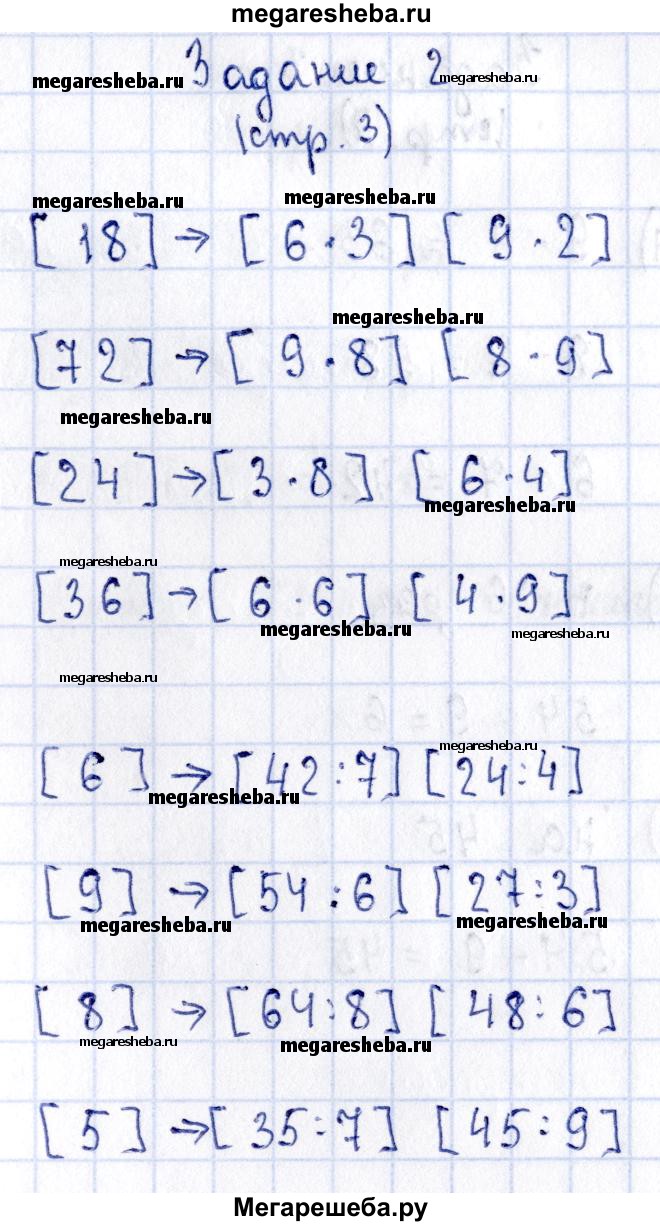 megaresheba.ru
Задание 2
megaresheba.ru megaresheba.ru
(стр. 3)
megaresheba.ru megaresheba.ru
[18] → [6 · 3] [9 · 2]
megaresheba.ru
[72] → [9 · 8] [8 · 9]
megaresheba.ru
[24] → [3 · 8] [6 · 4]
megaresheba.ru
megaresheba.ru
[36] → [6 · 6] [4 · 9]
megaresheba.ru megaresheba.ru
megaresheba.ru
megaresheba.ru
[6] → [42 : 7] [24 : 4]
megaresheba.ru
[9] → [54 : 6] [27 : 3]
megaresheba.ru megaresheba.ru
[8] → [64 : 8] [48 : 6]
megaresheba.ru megaresheba.ru
[5] → [35 : 7] [45 : 9]
Мегарешеба.ру